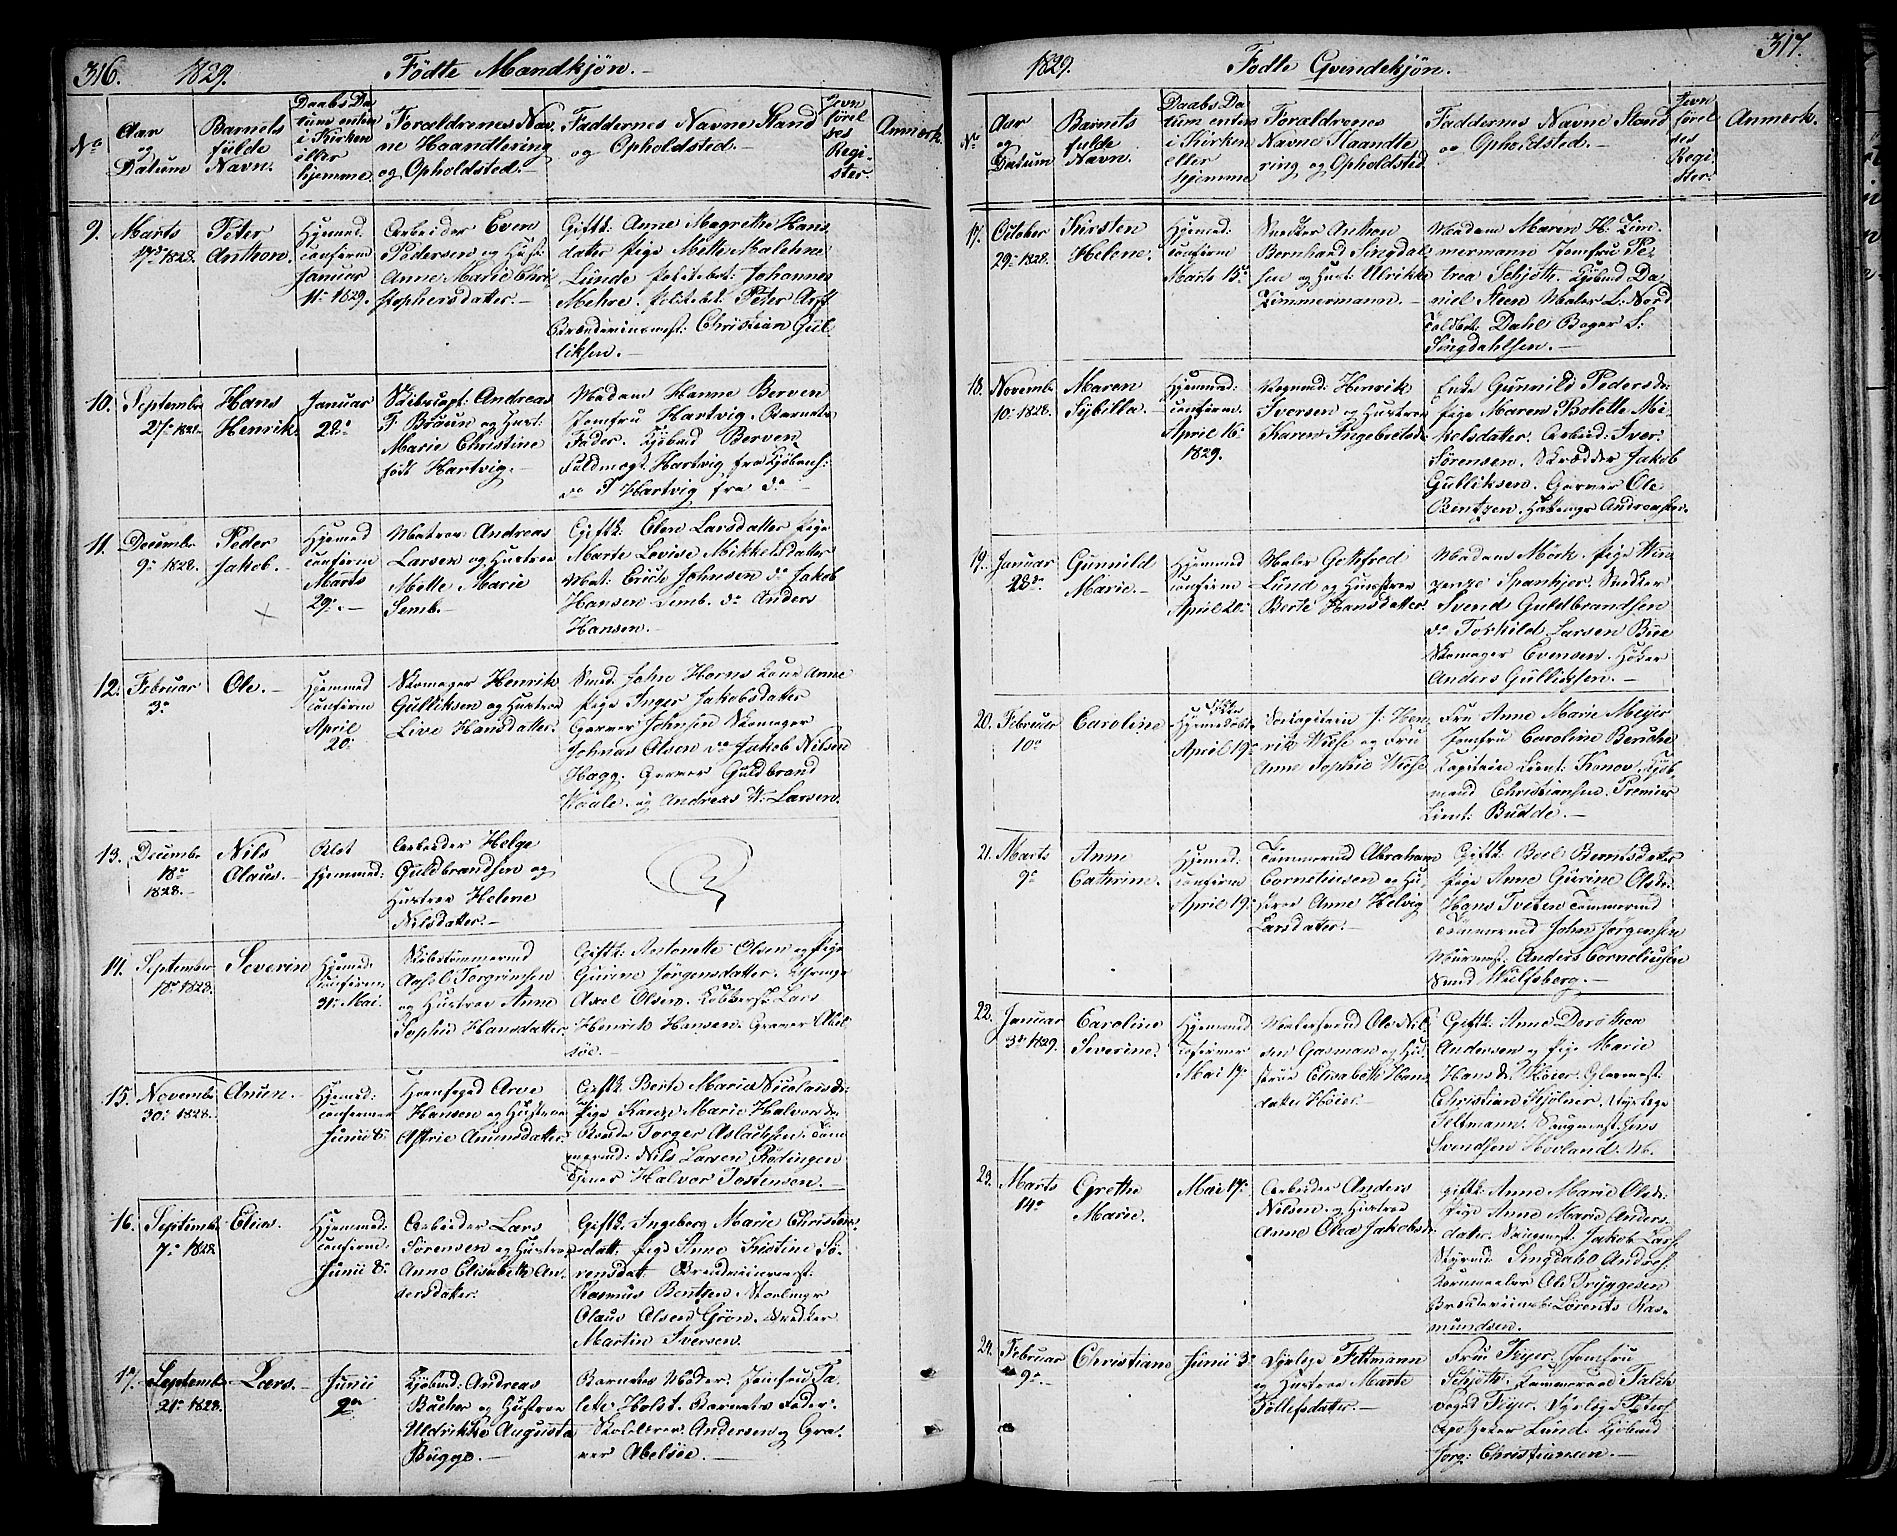 316. 1829. Födte Mandkjøn.
No
Aar
og
Datum
Barnets
fulde
Navn.
Daabs Da
tum enten
i Kirken
eller
hjemme
Foraldrenes Nav
ne Haandtering
og Opholdsted.
Faddernes Navne Stand
og Opholdsted.
Jevn
förel
ses
Regi
ster.
Anmerk.
9. Marts
17de 1828.
Peter
Anthon.
Hjemmed.
confirm
Januar
11te 1829.
Arbeider Even
Pedersen og Hust:
Anne Marie Chri
stophersdatter.
Giftk: Anne Magrethe Hans
datter Pige Mette Malehne
Lunde Johannes
Peter
Christian Gul
liksen.
10. Septembr
27de 1828.
Hans
Henrik.
Januar
22de
Andreas
F. Bruun og Hust:
Marie Christine
födt Hartvig.
Madam Hanne Berven
Jomfru Hartvig. Barnets
Fader. Kjöbmd Berven
Fuldmægt. Hartvig fra Kjöbenh:
do P Hartvig fra do
11. Decembr
9de 1828.
Peder
Jakob.
Hjemmed
confirm
Marts
29de
Matros Andreas
Larsen og Hustrue
Mette Marie
Semb.
Giftk: Elen Larsdatter Pige
Marte Lovise Mikkelsdatter
Mat: Erich Johnsen do Jakob
Hansen Semb. do Anders
Hansen.
12. Februar
3de
Ole.
Hjemmed
confirm
April
20de
Skomager Henrik
Gulliksen og Hustrue
Live Hansdatter.
Smed John Horns Kone Anne
Pige Inger Jakobsdatter
Garver Johnsen Skomager
Johnas Olsen do Jakob Nilsen
Hagg. Garver Guldbrand
Kaale. og Andreas W. Larsen.
13. Decembr
18de
1828.
Nils
Olaus.
Blot
hjemmed.
Arbeider Helge
Guldbrandsen og
Hustrue Helene
Nilsdatter.
14. September
18de 1828.
Severin
Hjemmed.
confirm
31te Mai.
Skibstömmermd
Torgrimsen
og Hustrue Anne
Sophie Hansdatter
Giftk: Antonette Olsen og Pige
Gurine Jörgensdatter.
Axel Olsen. Kobbersl. Lars
Henrik Hansen. Graver Abel
söe.
15. Novembr
30te 1828.
Anun.
Hjemmed.
confirmer
Junii 8de
Arne
Hansen og Hustrue
Astrie Anunsdatter.
Giftk Berte Marie Nicolaisd:
Pige Karen Marie Halvorsd:
Torger Aslachsen. Töm
mermd: Nils Larsen Rödningen
Tjener Halvor Tostensen.
16. Septembr
7de 1828
Elias.
Hjemmed.
confirm.
Junii 8de
Arbeider Lars
Sörensen og Hustrue
Anne Elisabeth An
dersdatter.
Giftk: Ingeborg Marie Christens
datt. Pige Anne Kristine Sö
rensdat. Brændeviinsmest:
Rasmus Bentzen
Olaus Olsen Grön. Snedker
Martin Iversen.
17. Septemb
21de 1828.
Lars.
Junii
2den
Kjöbmd: Andreas
Bucher og Hustrue
Uldrikke Augusta
Bugge.
Barnets Moder. Jomfru Ta
lette Holst. Barnets Fader.
Skolelærer Andersen og Gra
ver Abelsöe.
1829. Födte Qvindekjön. 317.
No
Aar
og
Datum
Barnets
fulde
Navn.
Daabs Da
tum enten
i Kirken
eller
hjemme
Foraldrenes
Navne Haandte
ring og Opholdsted
Faddernes Navne Stand
og Opholdsted.
Jevn
förel
ses
Regi
ster.
Anmerk.
17. October
29de 1828.
Kirsten
Helene.
Hjemmed:
confirm
Marts 15de
Snedker Anthon
Bernhard Singdal
sen og Hust: Ulrikke
Zimmermann.
Madam Maren H. Zim
mermann Jomfru Pe
trea Schjött. Kjöbmd Da
niel Steen Maler L. Nord
Toldbet: Dahl Bager L:
Singdahlsen.
18. Novembr
10de 1828.
Maren
Sybilla.
Hjemmed:
confirm.
April 16de
1829.
Vognmd: Henrik
Iversen og Hustrue
Karen Ingebretsdr
Enke Gunnild Pedersdr
Pige Maren Bolette Mi
kelsdatter. Arbeid: Iver
Sörensen. Skrædder Jakob
Gulliksen. Garver Ole
Bentzen.
19. Januar
28de
Gunnild
Marie.
Hjemmed
confirm
April 20de
Maler Gottfred
Lund og Hustrue
Berte Hansdatter.
Madam Mörk. Pige
Snedker
Svend Guldbrandsen
do Torkild Larsen Bue
Skomager Evensen. Höker
Anders Gulliksen.
20. Februar
10de
Caroline
April 19de
J: Hen
rik Wiese og Fru
Anne Sophie Wiese
Fru Anne Marie Meyer
Jomfru Caroline
Capitain Lieut: Konov. Kjöb
mand Christiansen. Premier
Lieut: Budde.
21. Marts
9de
Anne
Cathrine.
Hjemmed:
confirm
April 19de
Tömmermd Abraham
Corneliusen og Hu
strue Anne Helvig
Larsdatter.
Giftk: Boel Berntsdatter
Pige Anne Gurine Olsdr
Hans Tveten Tömmermd
Tömmermd Johan Jörgensen
Muurmest: Anders Corneliusen
Smed Wulfsberg.
22. Januar
3de 1829.
Caroline
Severine.
Hjemmed
confirmer
Mai 17de
Ole Nil
sen Gasman og Hu
strue Elisabeth Hans
datter Höier.
Giftk: Anne Dorothea
Andersen og Pige Marie
Hansdr Höier. Glarmest:
Christian Kjölner. Dyrlæge
Feltmann. Saugmest: Jens
Svendsen Hovland.
23. Marts
14de
Grethe
Marie.
Mai 17de
Arbeider Anders
Nilsen og Hustrue
Anne Olea Jakobsdr
giftk: Anne Marie Olsdr
Pige Anne Marie Anders
datter. Saugmest: Jakob Lars.
Styrmd Singdahl Andres.
Kornmaaler Ole Tryggesen
Brænderiimest: Lorents Ras
mundsen.
24. Februar
9de
Christiane
Junii 3de
Dyrlæge Feltmann
og Hustrue Marte
Tollefsdatter.
Fru Feyer. Jomfru
Schjött. Falke
og Feyer. Dyrlæge Peters.
Apotheker Lund. Kjöbmd
Jörg: Christiansen.